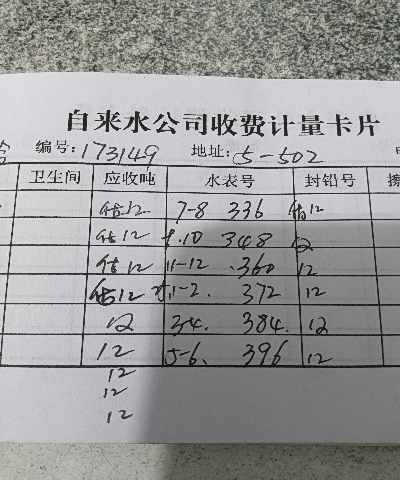 自来水公司收费计量卡片
编号:173149 地址:5-502
卫生间 应收吨 水表号 封铅号
估12 7-8 336 估12
估12 9.10 348 12
估12 11-12 .360 12
估12 1-2. 372 12
12 3-4. 384. 12
12 5-6. 396 12
12
12
12